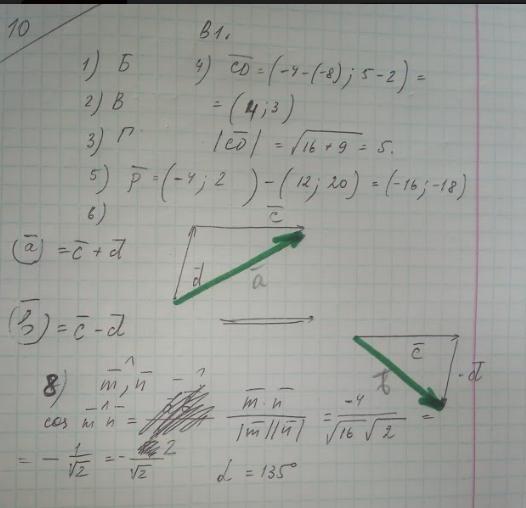 10
В1.
1) Б
2) В
3) Г
4) CD = (-4-(-8); 5-2) =
= (4; 3)
|CD| = √16+9 = 5.
5) p = (-4; 2) - (12; 20) = (-16; -18)
6)
a = c + d
c
d
a
b = c - d
c
b
-d
8) m, n
cos m n = m · n / |m||n| = -4 / √16 √2 =
= - 1/√2 = - √2/2
α = 135°